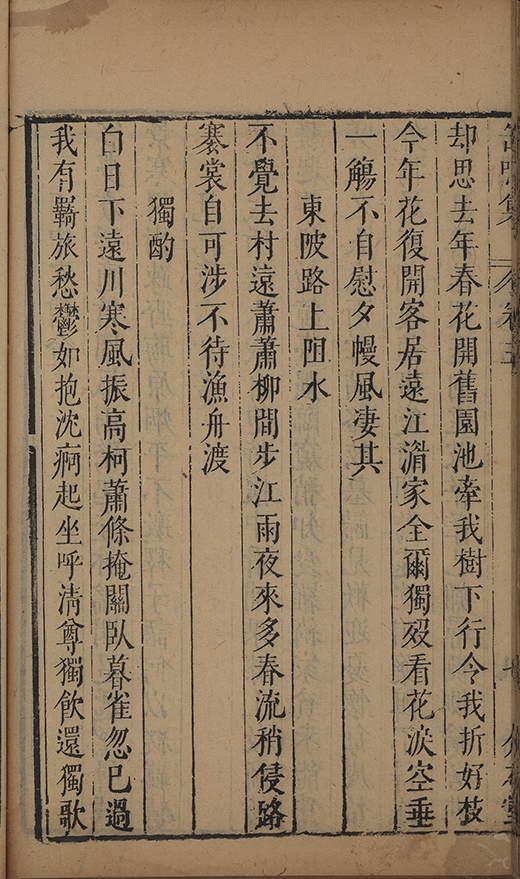 却思去年春花開舊園池牽我樹下行令我折好枝
今年花復開客居遠江湄家全爾獨歿看花淚空垂
一觴不自慰夕幔風凄其
東陂路上阻水
不覺去村遠蕭蕭柳間步江雨夜來多春流稍侵路
褰裳自可涉不待漁舟渡
獨酌
白日下遠川寒風振高柯蕭條掩關臥暮雀忽已過
我有羈旅愁鬱如抱沈痾起坐呼清尊獨飲還獨歌